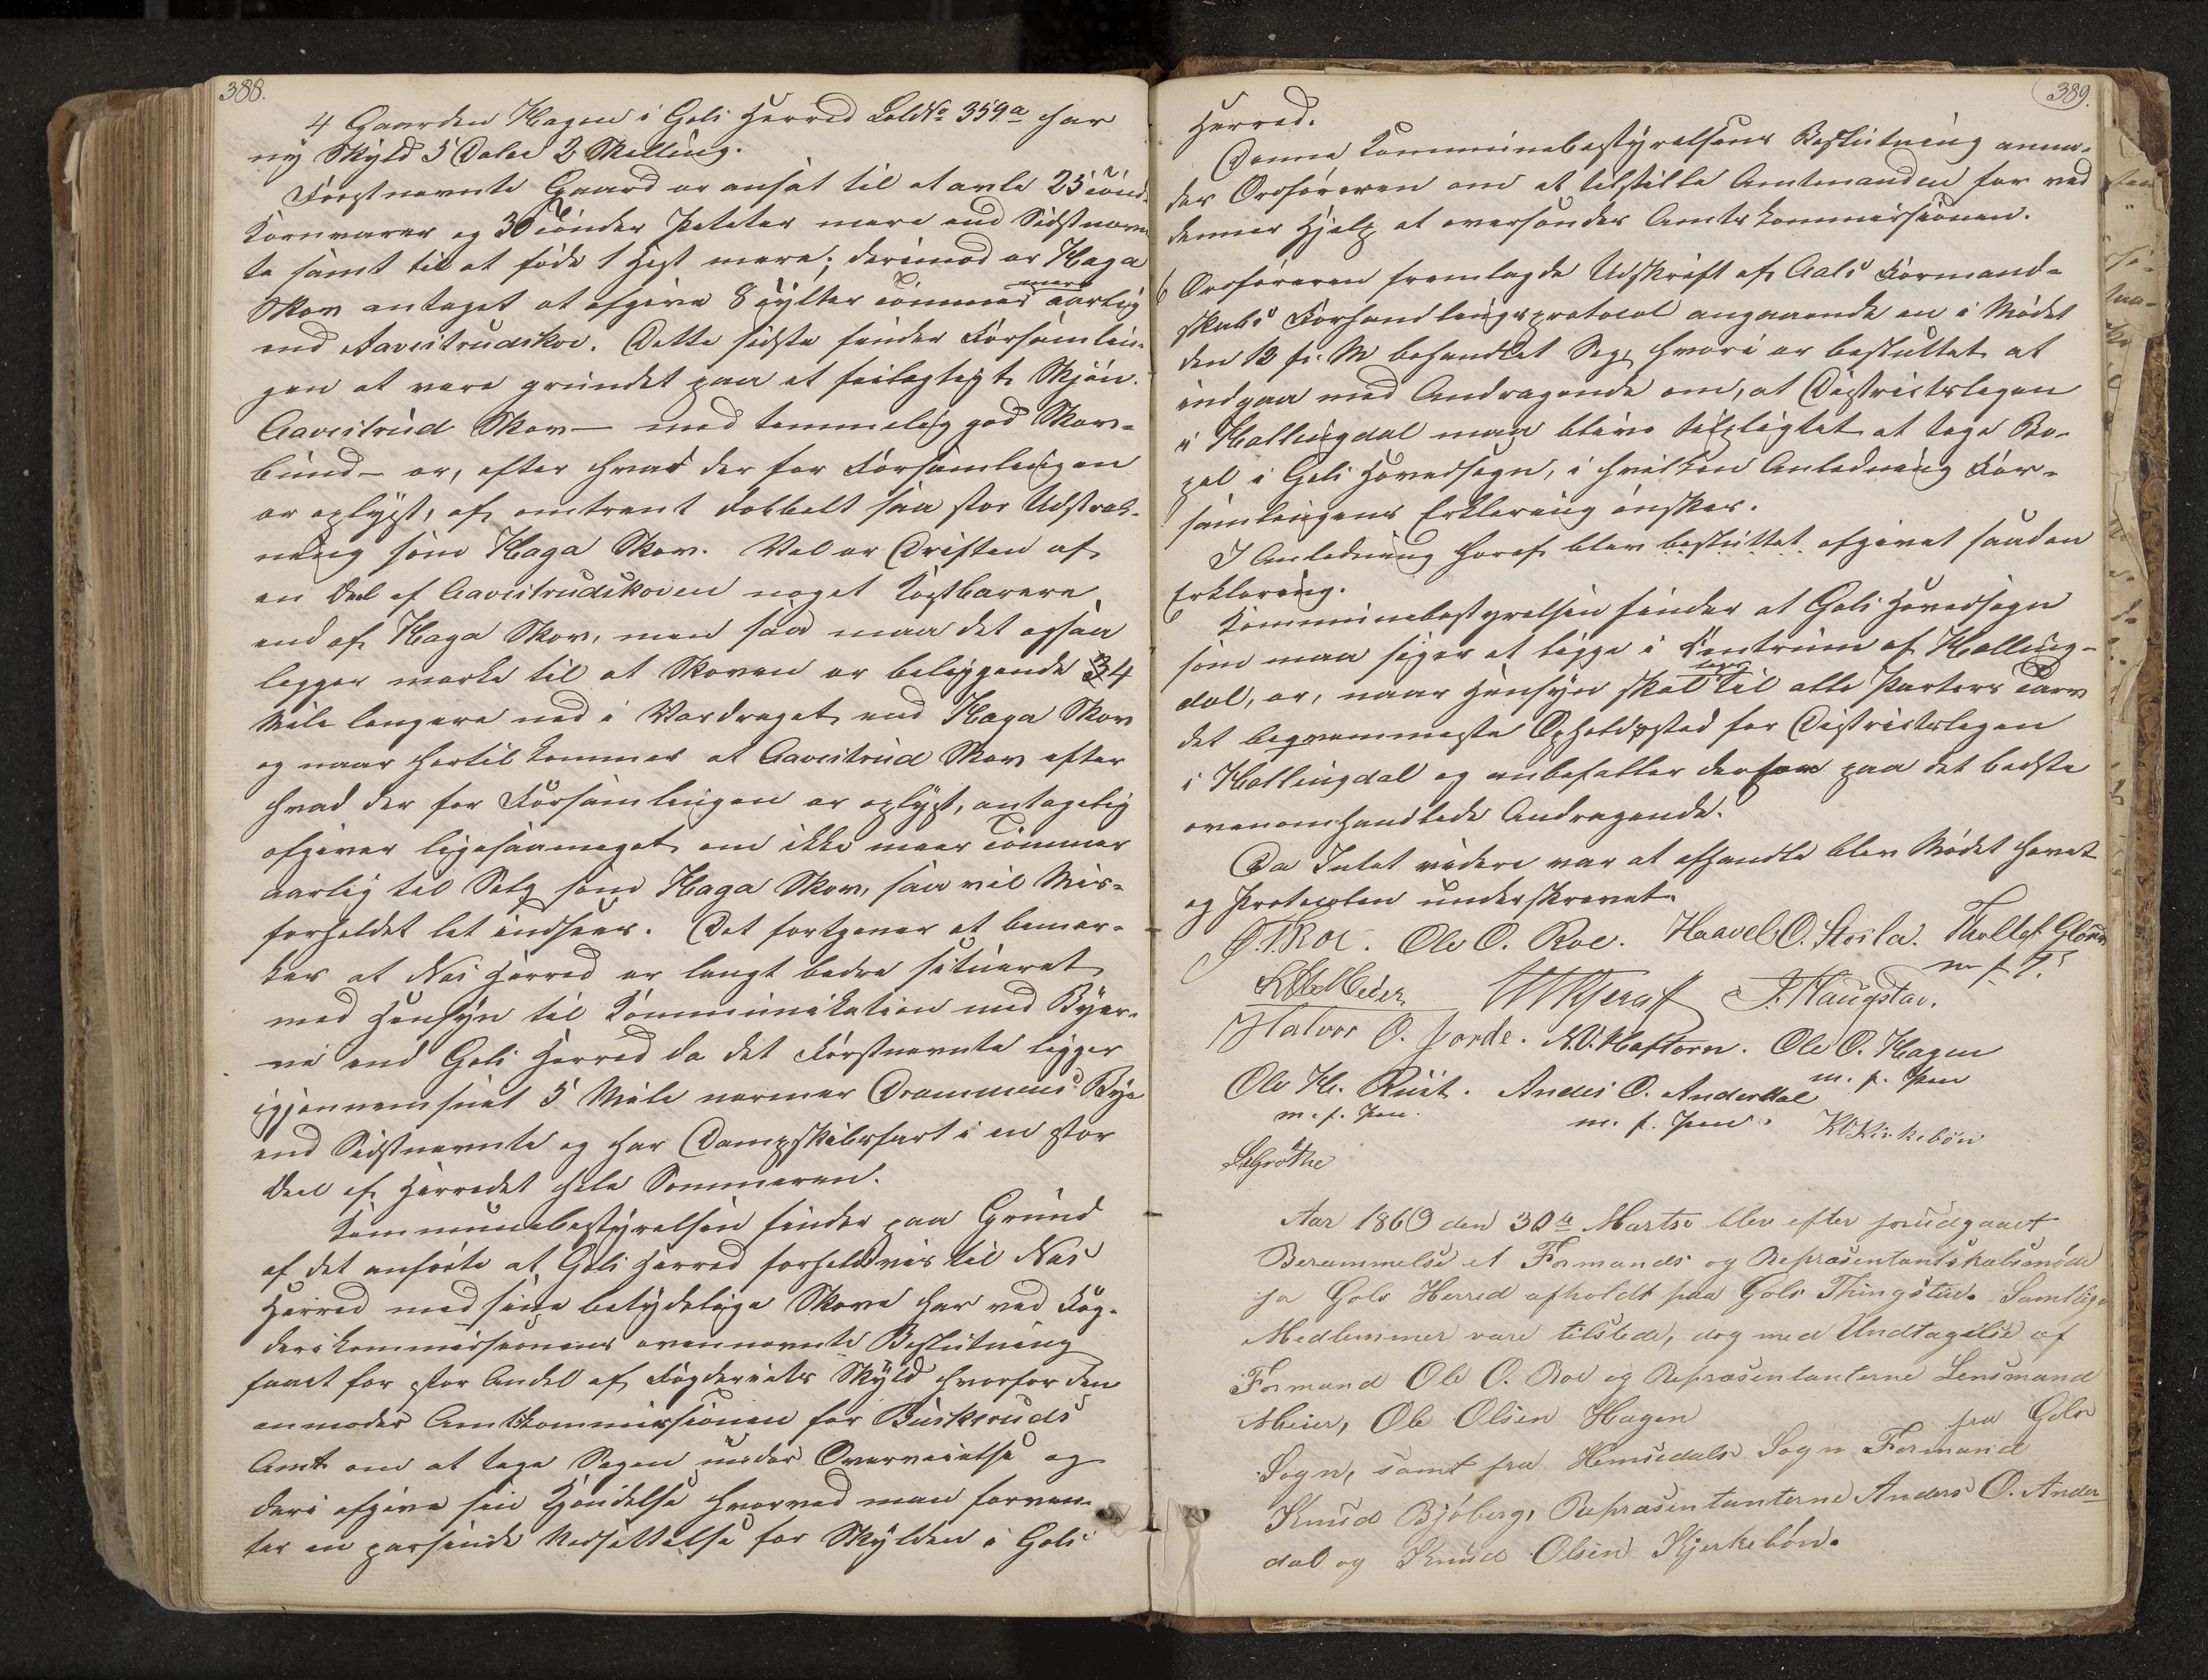 388.
4 Gaarden Hagen i Gols Herred LøbNo 359a har
ny Skyld 5 Daler 2 Skilling.
Førstnævnte Gaard er ansat til at avle 25 Tønd.
Kornvarer og 30 Tønder Poteter mere end Sidstnævn-
te samt til at føde 1 Hest mere; derimod er Haga
Skov antaget at afgive 8 Tylter Tømmer mere aarlig
end Aavestrudskov. Dette sidste finder Forsamlin-
gen at være grundet paa et feilagtigt Skjøn.
Aavestrud Skov – med temmelig god Skov-
bund – er, efter hvad der for Forsamlingen
er oplyst, af omtrent dobbelt saa stor Udstræk-
ning som Haga Skov. Vel er Driften af
en Deel af Aavestrudskoven noget kostbarere
end af Haga Skov, men saa maa det ogsaa
legges mærke til at Skoven er beliggende 4
Mile længere ned i Vasdraget end Haga Skov
og naar hertil kommer at Aavestrud Skov efter
hvad der for Forsamlingen er oplyst, antagelig
afgiver ligesaameget om ikke meer Tømmer
aarlig til Salg som Haga Skov, saa vil Mis-
forholdet let indsees. Det fortjener at bemær-
kes at Nes Herred er langt bedre situeret
med Hensyn til Kommunikation med Byer-
ne end Gols Herred da det Førstnævnte ligger
igjennemsnit 5 Mile nærmer Drammens Bye
end Sidstnævnte og har Dampskibsfart i en stor
Deel af Herredet hele Sommeren.
Kommunebestyrelsen finder paa Grund
af det anførte at Gols Herred forholdsvis til Nes
Herred med sine betydelige Skove har ved Fog-
derikommissionens ovennævnte Beslutning
faaet for stor Andel af Fogderiets Skyld hvorfor den
anmoder Amtskommissionen for Buskeruds
Amt om at tage Sagen under Overveielse og
deri afgive sin Kjendelse hvorved man forven-
ter en passende Nedsættelse for Skylden i Gols
389.
Herred.
Denne Kommunebestyrelsens Beslutning anmo-
des Ordføreren om at tilstille Amtmanden for ved
dennes Hjelp at oversendes Amtskommissionen.
6 Ordføreren fremlagde Udskrift af Aals Formand-
skabs Forhandlingsprotocol angaaende en i Mødet
den 13 f. M behandlet Sag, hvori er besluttet at
indgaa med Andragende om, at Districtslægen
i Hallingdal maa blive tilpligtet at tage Bo-
pæl i Gols Hovedsogn, i hvilken Anledning For-
samlingens Erklæring ønskes.
I Anledning heraf blev besluttet afgivet saadan
Erklæring.
Kommunebestyrelsen finder at Gols Hovedsogn
som maa siges at ligge i Centrum af Halling-
dal, er, naar Hensyn skal tages til alle Parters Tarv
det beqvemmeste Opholdssted for Districtslægen
i Hallingdal og anbefaller derfor paa det bedste
ovenomhandlede Andragende.
Da Intet videre var at afhandle blev Mødet hævet
og Protocolen underskrevet.
Ole O. Roe. Haavel O. Storla. Thollef
m f P.
Meier J. Haugstad.
Halvor O. Jorde. N. O. Haftorn. Ole O. Hagen
Ole H. Rust. Anders O. Anderdal m. f. Pen
m. f. Pen. m. f. Pen. KOKirkebøn
Grøthe
Aar 1869 den 30te Marts blev efter forudgaaet
Berammelse et Formands og Repræsentantskabsmøde
for Gols Herred afholdt paa Gols Thingstue. Samtlige
Medlemmer vare tilstede, dog med Undtagelse af
Formand Ole O. Roe og Repræsentanterne Lensmand
Meier, Ole Olsen Hagen fra Gols
Sogn, samt fra Hemsedals Sogn Formand
Knud Bjøberg, Repræsentanterne Anders O. Ander-
dal og Knud Olsen Kjerkebøn.